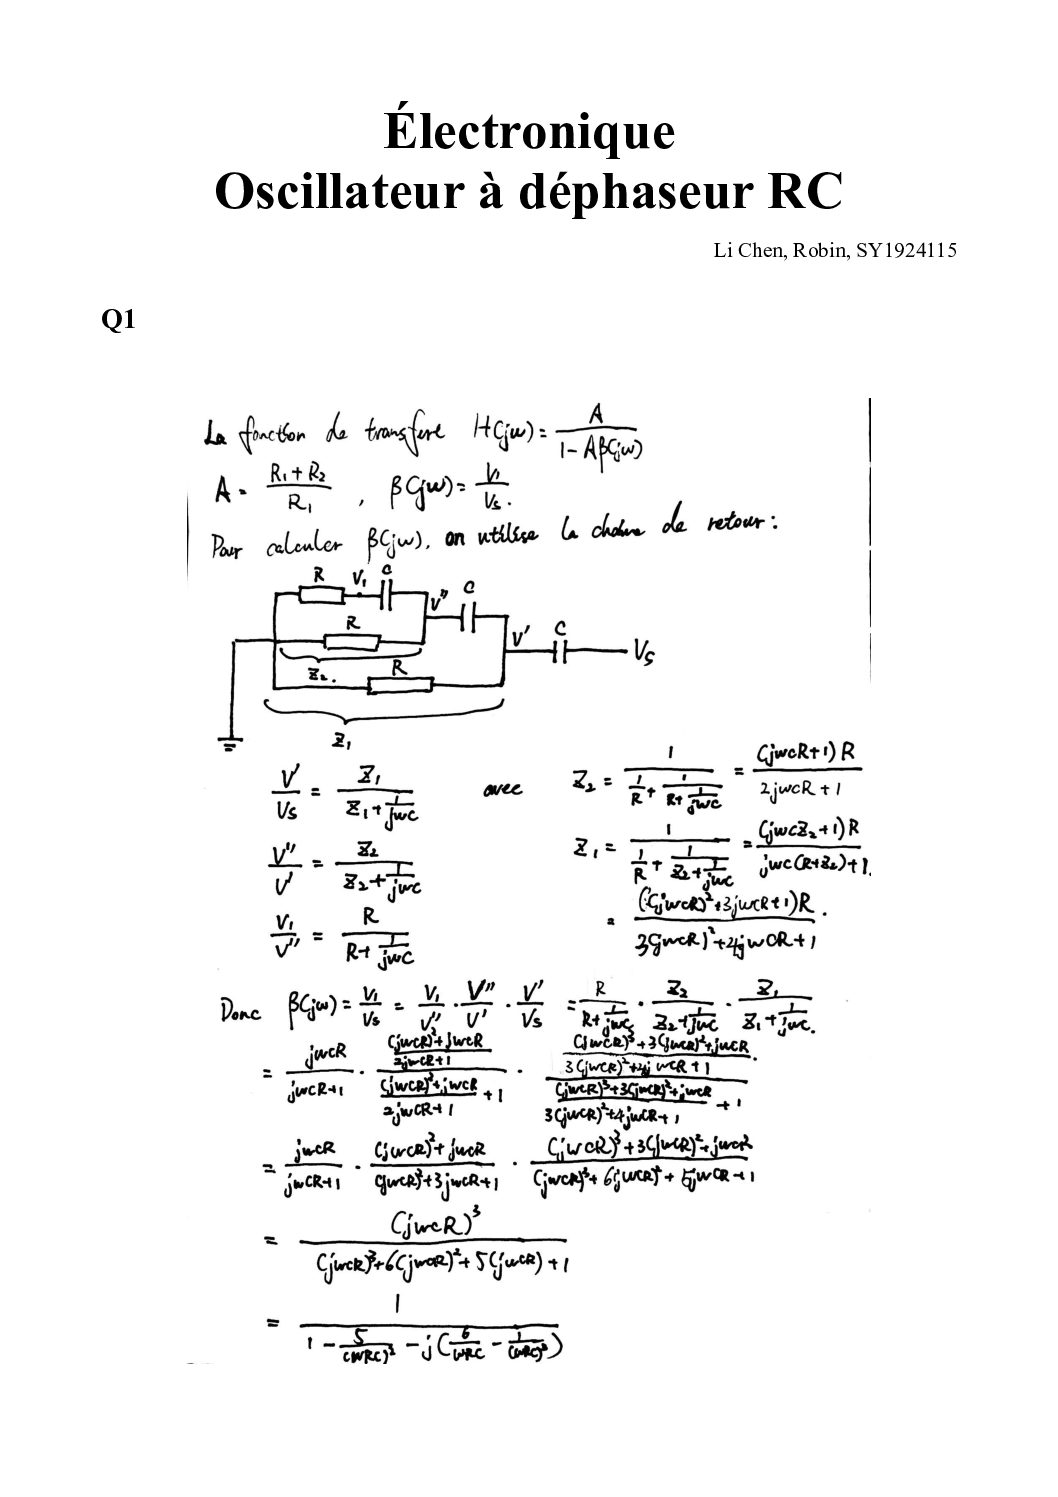 Électronique
Oscillateur à déphaseur RC
Li Chen, Robin, SY1924115
Q1
La fonction de transfere H(jω) = A / (1 - Aβ(jω))
A = (R₁ + R₂) / R₁ , β(jω) = V₁ / Vs.
Pour calculer β(jω), on utilise la chaîne de retour :
R V₁ C
V'' C
R
V' C Vs
Z₂. R
Z₁
V' / Vs = Z₁ / (Z₁ + 1/(jωC)) avec Z₂ = 1 / (1/R + 1/(R + 1/(jωC))) = (jωCR+1)R / (2jωCR+1)
V'' / V' = Z₂ / (Z₂ + 1/(jωC)) Z₁ = 1 / (1/R + 1/(Z₂ + 1/(jωC))) = (jωCZ₂+1)R / (jωC(R+Z₂)+1).
V₁ / V'' = R / (R + 1/(jωC)) = ((jωCR)²+3jωCR+1)R / (3(jωCR)²+4jωCR+1).
Donc β(jω) = V₁/Vs = V₁/V'' · V''/V' · V'/Vs = R/(R + 1/(jωC)) · Z₂/(Z₂ + 1/(jωC)) · Z₁/(Z₁ + 1/(jωC)).
= jωCR/(jωCR+1) · (((jωCR)²+jωCR)/(2jωCR+1)) / (((jωCR)²+jωCR)/(2jωCR+1) + 1) · (((jωCR)³+3(jωCR)²+jωCR)/(3(jωCR)²+4jωCR+1)) / (((jωCR)³+3(jωCR)²+jωCR)/(3(jωCR)²+4jωCR+1) + 1).
= jωCR/(jωCR+1) · ((jωCR)²+jωCR)/((jωCR)²+3jωCR+1) · ((jωCR)³+3(jωCR)²+jωCR)/((jωCR)³+6(jωCR)²+5jωCR+1)
= (jωCR)³ / ((jωCR)³+6(jωCR)²+5(jωCR)+1)
= 1 / (1 - 5/(ωRC)² - j(6/(ωRC) - 1/(ωRC)³))